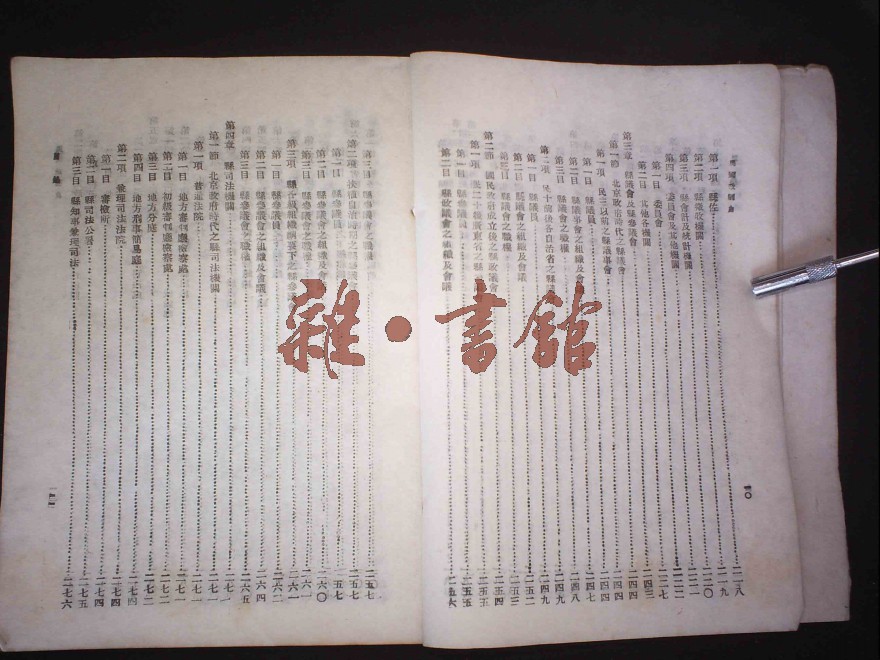 第一項 縣佐 二一八
第二項 縣徵收機關 二一九
第三項 縣會計及統計機關
第四項 委員會及其他機關
第一目 委員會 二二七
第二目 其他各機關 二四三
第三章 縣議會及縣參議會 二四四
第一節 北京政府時代之縣議會 二四四
第一項 民三以前之縣議事會 二四四
第一目 縣議員 二四七
第二目 縣議會之組織及會議 二四八
第三目 縣議會之職權 二四九
第二項 民十前後各自治省之縣議會 二四九
第一目 縣議員
第二目 縣議會之組織及會議
第三目 縣議會之職權 二五三
第二節 國民政府成立後之縣政議會 二五四
第一項 二五五
第一目 縣議員 二五五
第二目 縣政議會之組織及會議 二五六
一〇
雜·書館
二五七
二五七
第一目 縣參議員 二五七
第二目 縣參議會之組織及會議 二六〇
第三目 縣參議會之職權 二六一
第三項 縣各級組織綱要下之縣參議會 二六一
第一目 縣參議員 二六二
第二目 縣參議會之組織及會議 二六四
第三目 縣參議會之職權 二六五
第四章 縣司法機關 二七一
第一節 北京政府時代之縣司法機關 二七一
第一項 普通法院 二七一
第一目 地方審判廳檢察處 二七一
第二目 初級審判廳檢察處 二七二
第三目 地方分庭 二七二
第四目 地方刑事簡易庭 二七四
第二項 兼理司法法院 二七四
第一目 審檢所 二七四
第二目 縣司法公署 二七五
第三目 縣知事兼理司法 二七六